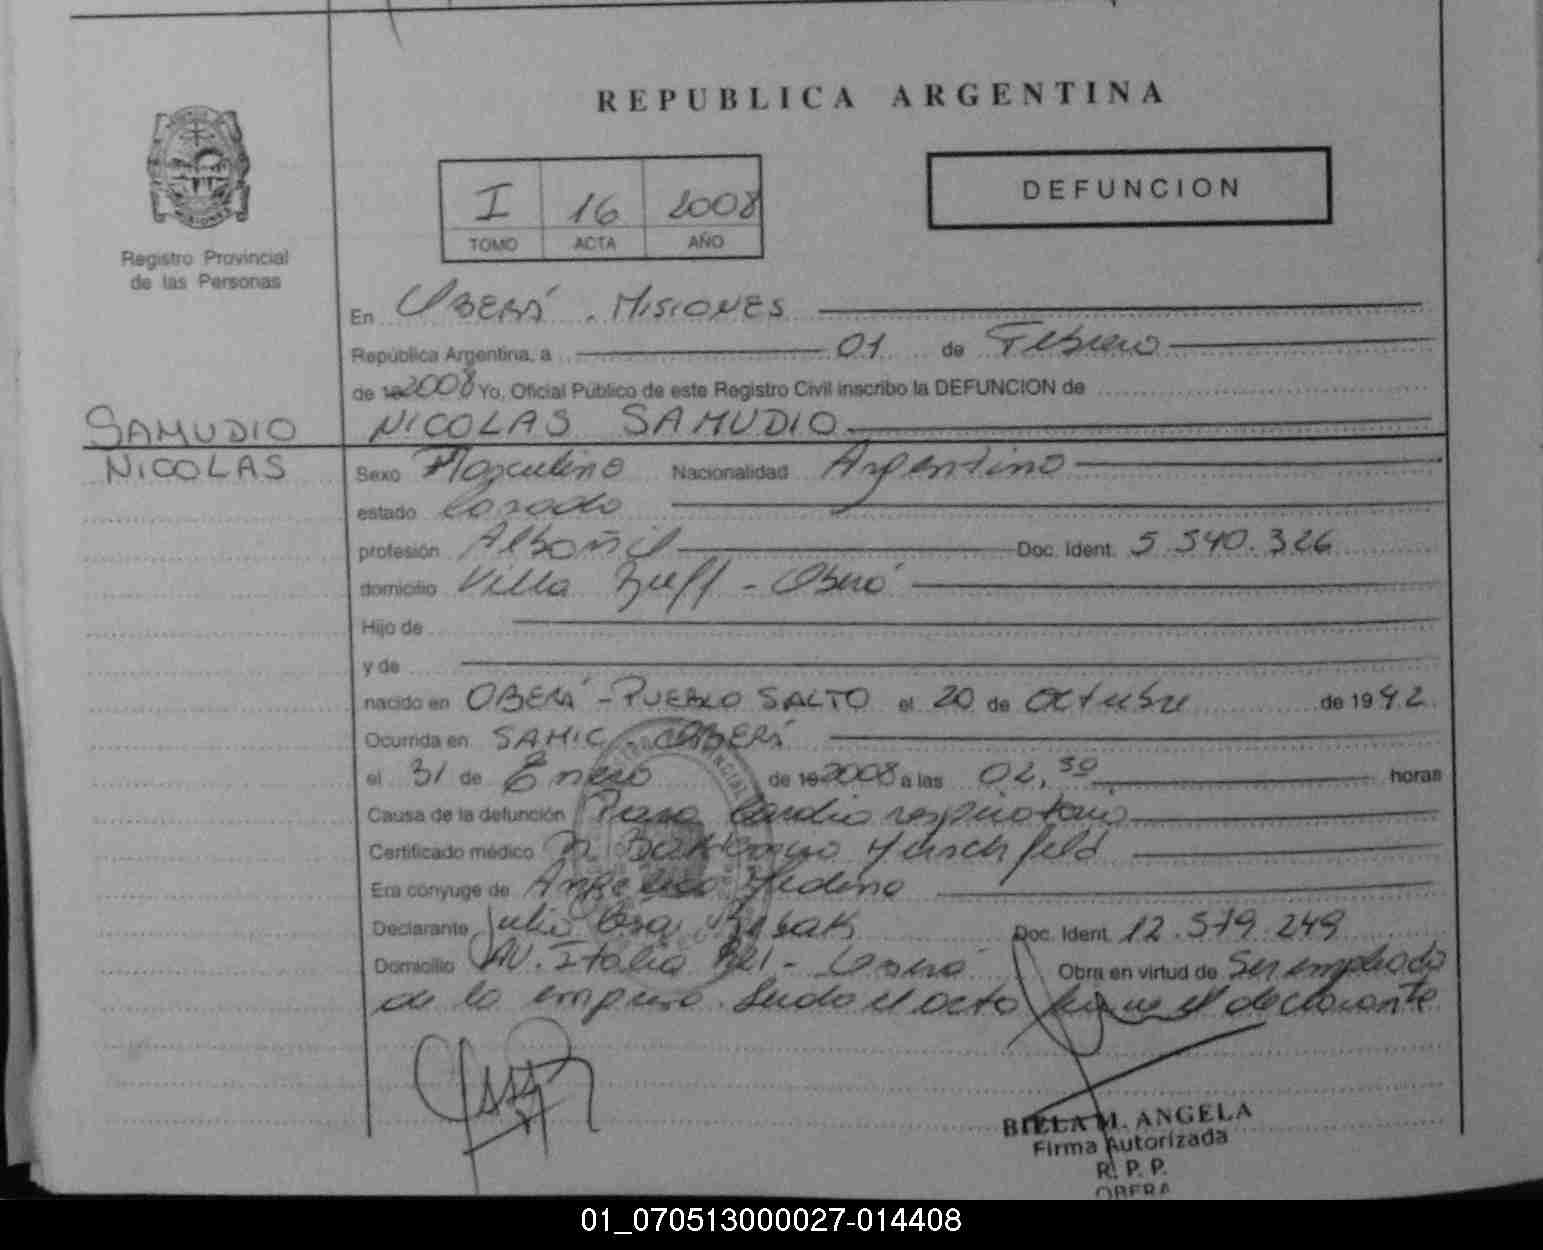 REPUBLICA ARGENTINA
Registro Provincial
de las Personas
I 16 2008
TOMO ACTA AÑO
DEFUNCION
En OBERÁ . MISIONES
República Argentina, a 01 de Febrero
de 192008 Yo, Oficial Público de este Registro Civil inscribo la DEFUNCION de
SAMUDIO
NICOLAS
NICOLAS SAMUDIO
Sexo Masculino Nacionalidad Argentino
estado Casado
profesión Albañil Doc. Ident. 5.540.326
domicilio Villa - Oberá
Hijo de
y de
nacido en OBERÁ - PUEBLO SALTO el 20 de Octubre de 1942
Ocurrida en SAMIC OBERÁ
el 31 de Enero de 192008 a las 02,30 horas
Causa de la defunción Paro Cardio respiratorio
Certificado médico Dr.
Era cónyuge de Medina
Declarante Julio Doc. Ident. 12.579.249
Domicilio AV. Italia - Oberá Obra en virtud de Ser empleado
de la empresa. Leida el acto firma el declarante
BIELA M. ANGELA
Firma Autorizada
R. P. P.
OBERA
01_070513000027-014408